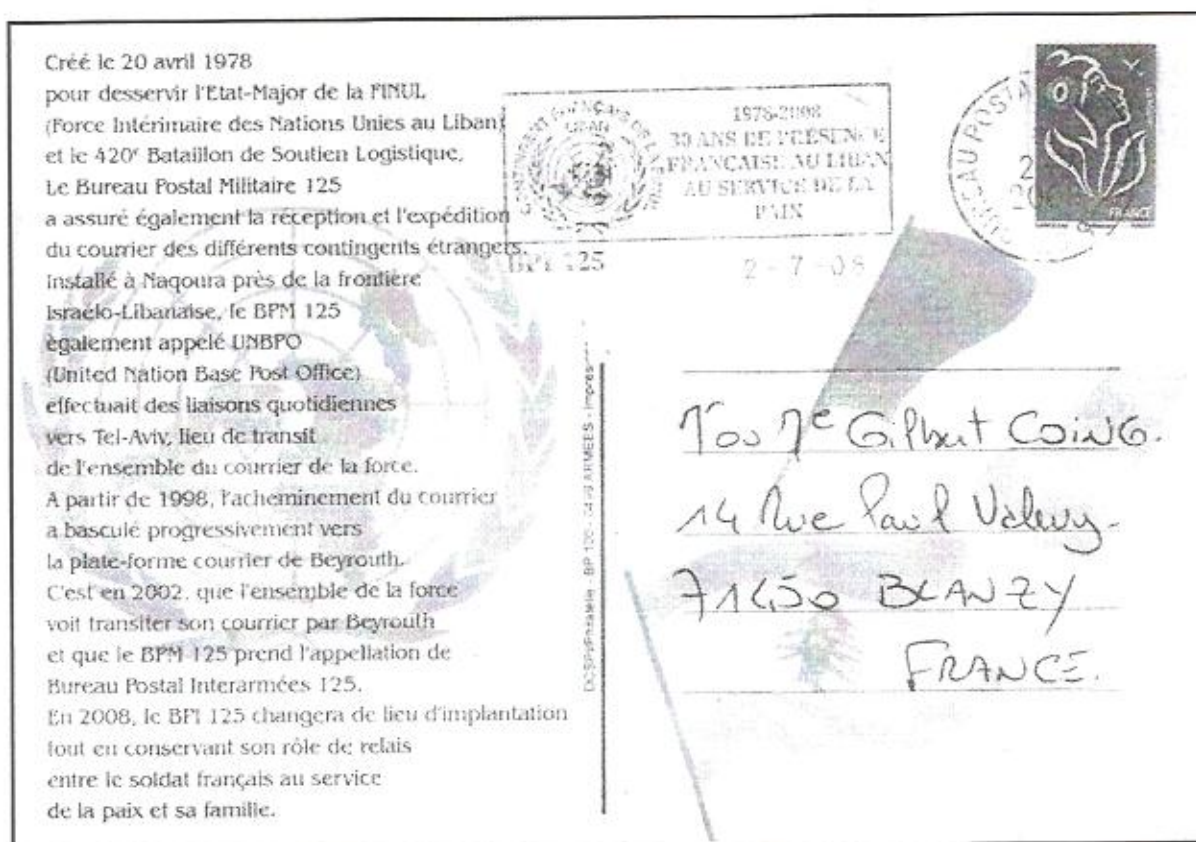 Créé le 20 avril 1978
pour desservir l'Etat-Major de la FINUL
(Force Intérimaire des Nations Unies au Liban)
et le 420e Bataillon de Soutien Logistique,
Le Bureau Postal Militaire 125
a assuré également la réception et l'expédition
du courrier des différents contingents étrangers.
Installé à Naqoura près de la frontière
Israélo-Libanaise, le BPM 125
également appelé UNBPO
(United Nation Base Post Office)
effectuait des liaisons quotidiennes
vers Tel-Aviv, lieu de transit
de l'ensemble du courrier de la force.
A partir de 1998, l'acheminement du courrier
a basculé progressivement vers
la plate-forme courrier de Beyrouth.
C'est en 2002, que l'ensemble de la force
voit transiter son courrier par Beyrouth
et que le BPM 125 prend l'appellation de
Bureau Postal Interarmées 125.
En 2008, le BPI 125 changera de lieu d'implantation
tout en conservant son rôle de relais
entre le soldat français au service
de la paix et sa famille.
1978-2008
30 ANS DE PRESENCE
FRANCAISE AU LIBAN
AU SERVICE DE LA
PAIX
BPI 125
2-7-08
BUREAU POSTAL
FRANCE
ARMEES
Gilbert COING.
14 Rue Paul Valery.
71450 BLANZY
FRANCE.